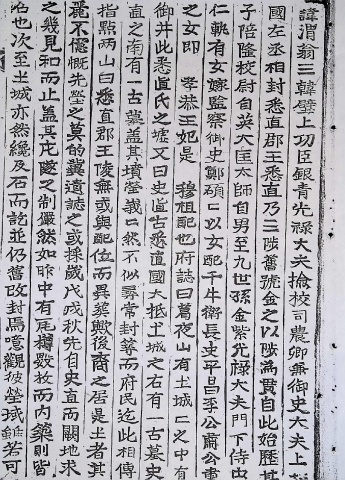 諱渭翁三韓壁上功臣銀青光祿大夫檢校司農卿兼御史大夫上
國左丞相封悉直郡王悉直乃三陟舊號金之以陟為貫自此始歷其
子陪隆校尉自英大匡太師自男至九世孫金紫光祿大夫門下侍中
仁軌有女嫁監察御史鄭碩〻以女配千牛衛長史平昌李公肅公肅
之女即 孝恭王妃是 穆祖配也府誌曰葛夜山有土城〻之中有
御井此悉直氏之墟又曰史直古悉直國大抵土城之右有一古墓史
直之南有一古墓蓋其墳塋巍〻然不似尋常封等而府民迄此相傳
指點兩山曰悉直郡王陵無或與配位而異葬歟後裔之居是土者其
麗不億慨先塋之莫的冀遺誌之或採歲戊戌秋先自史直而闢地求
之幾見和而止蓋其隧之制儼然如昨中有瓦樽數枚而內築則皆
石也次至土城亦然纔及石而訖並仍舊改封焉噫觀彼塋域雖若可